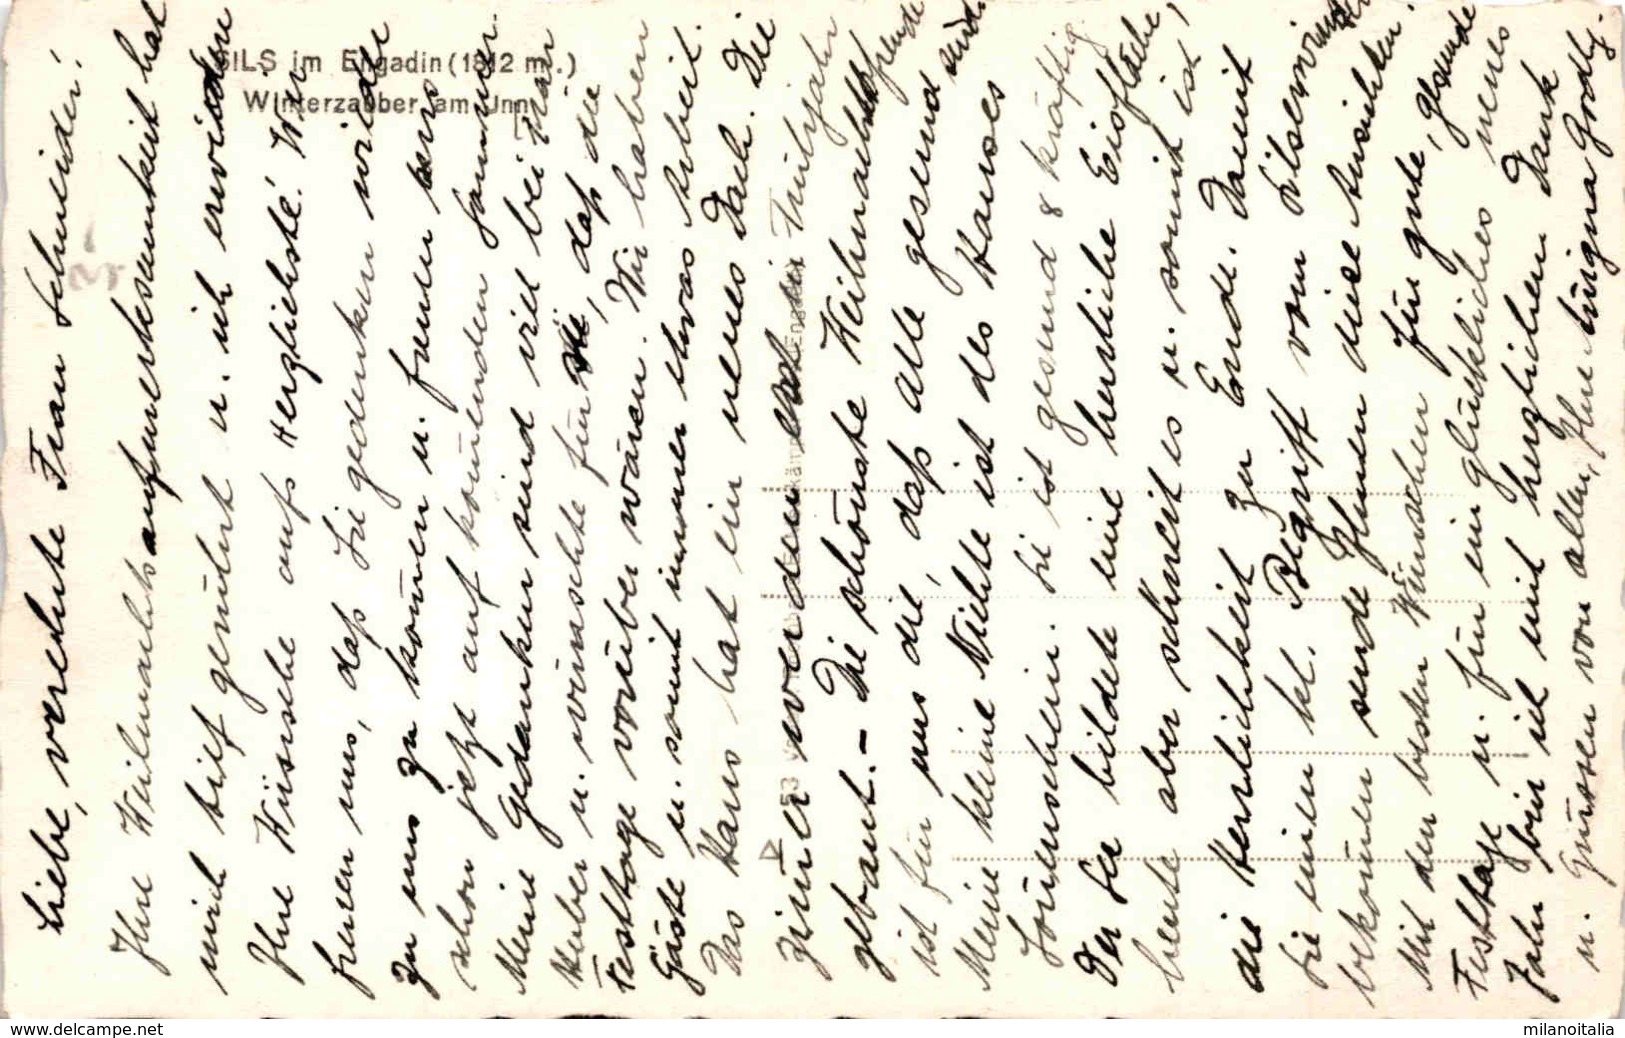 SILS im Engadin (1812 m.)
Winterzauber am Inn
Liebe, verehrte Frau Schneider!
Ihre Weihnachtsaufmerksamkeit hat
mich tief gerührt u. ich erwidere
Ihre Wünsche aufs Herzlichste! Wir
freuen uns, daß Sie gedenken wieder
zu uns zu kommen u. freuen uns
schon jetzt auf kommenden Sommer.
Meine Gedanken sind viel bei
u. wünschte für Sie, daß die
Festtage vorüber wären. Wir haben
Gäste u. somit immer etwas Arbeit.
Das Haus hat ein neues Dach. Die
werden erst im Frühjahr
gebaut. - Die schönste Weihnachtsfreude
ist für uns die, daß alle gesund sind.
Meine kleine Nichte ist des Hauses
Sonnenschein. Sie ist gesund & kräftig.
Der See bildete eine herrliche Eisfläche,
heute aber schneit es u. somit ist
die Herrlichkeit zu Ende. Damit
Sie einen kl. Begriff vom Silserwinter
bekommen sende Ihnen diese Ansichten.
Mit den besten Wünschen für gute, gesunde
Festtage u. für ein glückliches neues
Jahr bin ich mit herzlichem Dank
u. Grüssen von allen, Ihre
www.delcampe.net
milanoitalia